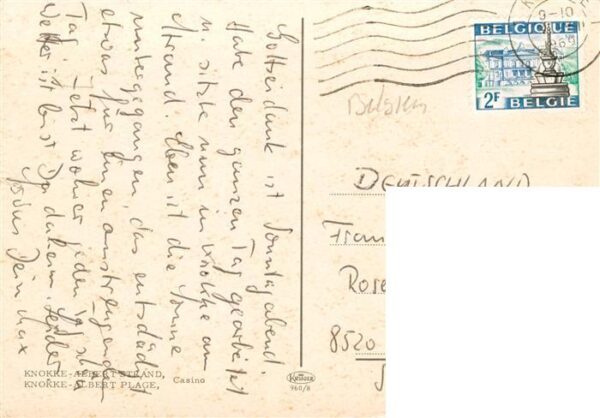 Gottseidank ist Sonntagabend.
Habe den ganzen Tag gearbeitet
u. sitze nun in Knokke am
Strand. Eben ist die Sonne
untergegangen, das entschädigt
etwas für einen anstrengenden
Tag. Jetzt jeden
Wetter ist bist Du daheim. Leider
Max
KNOKKE-ALBERT STRAND,
KNOKKE-ALBERT PLAGE, Casino
960/8
BELGIQUE
2F BELGIE
9-10
Belgien
DEUTSCHLAND
Fran
Rose
8520